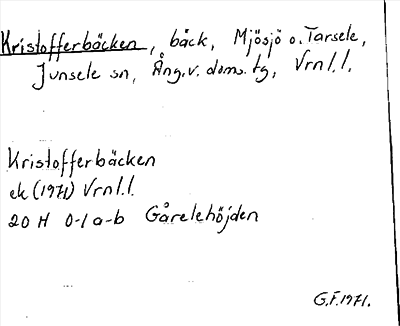 Kristofferbäcken, bäck, Mjösjö o. Tarsele,
Junsele sn, Ång.v. doms. tg, Vrnl.l.
Kristofferbäcken
ek (1971) Vrnl.l.
20 H 0-1 a-b Gårelehöjden
G.F. 1971.